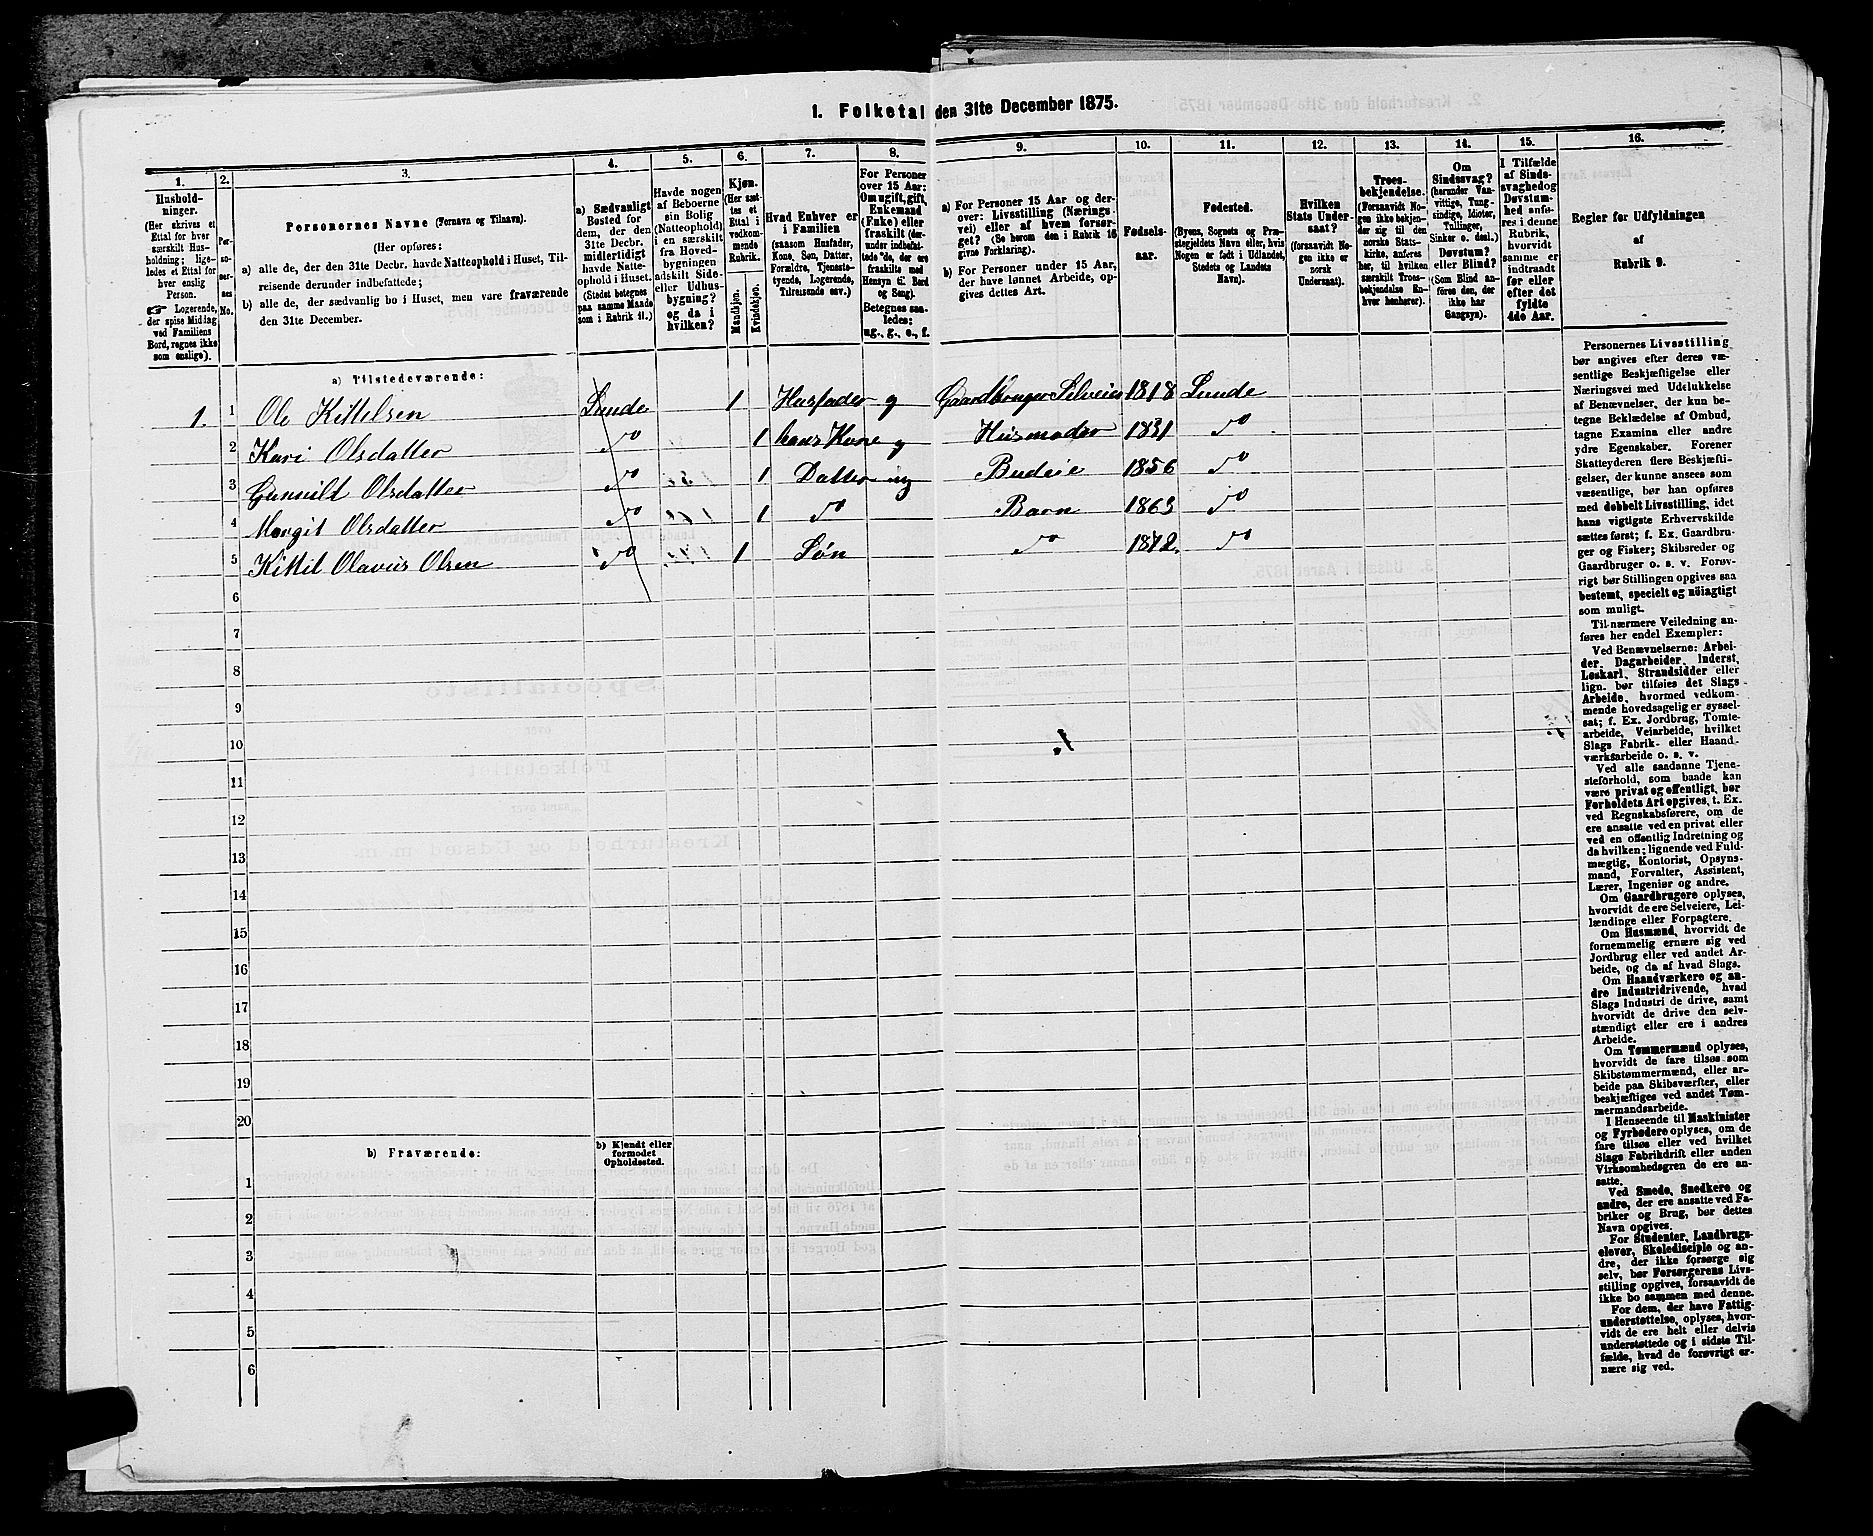 1. Folketal den 31te December 1875.
1.
2.
3.
4.
5.
6.
7.
8.
9.
10.
11.
12.
13.
14.
15.
16.
Hushold-
ninger.
(Her skrives et
Ettal for hver
særskilt Hus-
holdning; lige-
ledes et Ettal for
hver enslig
Person.
☞ Logerende,
der spise Middag
ved Familiens
Bord, regnes ikke
som enslige).
Per-
so-
ner-
nes
No.
Personernes Navne (Fornavn og Tilnavn).
(Her opføres:
a) alle de, der den 31te Decbr. havde Natteophold i Huset, Til-
reisende derunder indbefattede;
b) alle de, der sædvanlig bo i Huset, men vare fraværende
den 31te December.
a) Sædvanligt
Bosted for
dem, der den
31te Decbr.
midlertidigt
havde Natte-
ophold i Huset.
(Stedet betegnes
paa samme Maade
som i Rubrik 11.)
Havde nogen
af Beboerne
sin Bolig
(Natteophold)
i en særskilt
fra Hoved-
bygningen
adskilt Side-
eller Udhus-
bygning?
og da i
hvilken?
Kjøn.
(Her sæt-
tes et
Ettal i
vedkom-
mende
Rubrik.
Mandkjøn.
Kvindekjøn.
Hvad Enhver er
i Familien
(saasom Husfader,
Kone, Søn, Datter,
Forældre, Tjeneste-
tyende, Logerende,
Tilreisende osv.)
For Personer
over 15 Aar:
Om ugift, gift,
Enkemand
(Enke) eller
fraskilt (der-
under indbefat-
tede de, der ere
fraskilte med
Hensyn til Bord
og Seng).
Betegnes saa-
ledes;
ug., g., e., f.
a) For Personer 15 Aar og der-
over: Livsstilling (Nærings-
vei) eller af hvem forsør-
get? (Se herom den i Rubrik 16
givne Forklaring).
b) For Personer under 15 Aar,
der have lønnet Arbeide, op-
gives dettes Art.
Fødsels-
aar.
Fødested.
(Byens, Sognets og Præ-
stegjeldets Navn eller, hvis
Nogen er født i Udlandet,
Stedets og Landets
Navn).
Hvilken
Stats Under-
saat?
(forsaavidt No-
gen ikke er
norsk
Undersaat).
Troes-
bekjendelse.
(Forsaavidt No-
gen ikke bekjen-
der sig til den
norske Stats-
kirke, anføres
her, til hvilken
særskilt Troes-
bekjendelse En-
hver henhører).
Om
Sindssvag?
(herunder Van-
vittige, Tung-
sindige, Idioter,
Tullinger,
Sinker o. desl.)
Døvstum?
eller Blind?
(Som Blind an-
føres den, der
ikke har
Gangsyn).
I Tilfælde
af Sinds-
svaghed og
Døvstum-
hed anfø-
res i denne
Rubrik,
hvorvidt
samme er
indtraadt
før eller
efter det
fyldte
4de Aar.
Regler for Udfyldningen
af
Rubrik 9.
a) Tilstedeværende:
1. 1 Ole Kittelsen Lunde 1 Husfader g Gaardbruger Selveier 1818 Lunde
2 Kari Olsdatter do 1 hans Kone g Husmoder 1831 do
3 Gunnild Olsdatter do 1 Datter ug Budeie 1856 do
4 Margit Olsdatter do 1 do Barn 1863 do
5 Kittil Olavus Olsen do 1 Søn do 1872. do
6
7
8
9
10
11
12
13
14
15
16
17
18
19
20
b) Fraværende:
b) Kjendt eller
formodet
Opholdssted.
1
2
3
4
5
6
Personernes Livsstilling
bør angives efter deres væ-
sentlige Beskjæftigelse eller
Næringsvei med Udelukkelse
af Benævnelser, der kun be-
tegne Beklædelse af Ombud,
tagne Examina eller andre
ydre Egenskaber. Forener
Skatteyderen flere Beskjæfti-
gelser, der kunne ansees som
væsentlige, bør han opføres
med dobbelt Livsstilling, idet
hans vigtigste Erhvervskilde
sættes først; f. Ex. Gaardbru-
ger og Fisker; Skibsreder og
Gaardbruger o. s. v. Forøv-
rigt bør Stillingen opgives saa
bestemt, specielt og nöiagtigt
som muligt.
Til nærmere Veiledning an-
føres her endel Exempler:
Ved Benævnelserne: Arbei-
der, Dagarbeider, Inderst,
Løskarl, Strandsidder eller
lign. bør tilføies det Slags
Arbeide, hvormed vedkom-
mende hovedsagelig er syssel-
sat; f. Ex. Jordbrug, Tomte-
arbeide, Veiarbeide, hvilket
Slags Fabrik- eller Haand-
værksarbeide o. s. v.
Ved alle saadanne Tjene-
steforhold, som baade kan
være privat og offentligt, bør
Forholdets Art opgives, t. Ex.
ved Regnskabsførere, om de
ere ansatte ved en privat eller
ved en offentlig Indretning og
da hvilken; lignende ved Fuld-
mægtig, Kontorist, Opsyns-
mand, Forvalter, Assistent,
Lærer, Ingeniør og andre.
Om Gaardbrugere oplyses,
hvorvidt de ere Selveiere, Lei-
lændinge eller Forpagtere.
Om Husmænd, hvorvidt de
fornemmelig ernære sig ved
Jordbrug eller ved andet Ar-
beide, og da af hvad Slags.
Om Haandværkere og an-
dre Industridrivende, hvad
Slags Industri de drive, samt
hvorvidt de drive den selv-
stændigt eller ere i andres
Arbeide.
Om Tømmermænd oplyses,
hvorvidt de fare tilsøs som
Skibstømmermænd, eller ar-
beide paa Skibsværfter, eller
beskjæftiges ved andet Tøm-
mermandsarbeide.
I Henseende til Maskinister
og Fyrbødere oplyses, om de
fare tilsøs eller ved hvilket
Slags Fabrikdrift eller anden
Virksomhedsgren de ere an-
satte.
Ved Smede, Snedkere og
andre, der ere ansatte ved Fa-
briker og Brug, bør dettes
Navn opgives.
For Studenter, Landbrugs-
elever, Skoledisciple og an-
dre, der ikke forsørge sig
selv, bør Forsørgerens Livs-
stilling opgives, forsaavidt de
ikke bo sammen med denne.
For dem, der have Fattig-
understøttelse, oplyses, hvor-
vidt de ere helt eller delvis
understøttede og i sidste Til-
fælde, hvad de forøvrigt er-
nære sig ved.